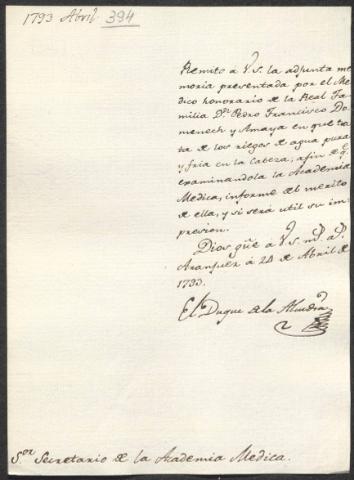 1793 Abril. 394
Remito á V.S. la adjunta me
moria presentada por el Me
dico honorario de la Real Fa
milia Dn. Pedro Francisco Do
menech y Amaya en que tra
ta de los riegos de agua pura
y fria en la Cabeza, afin de q.e
examinandola la Academia
Medica, informe del merito
de ella, y si será util su im
presion.
Dios gũe á V.S. m.s a.s
Aranjuez á 24 de Abril de
1793.
El Duque de la Alcudia
S.or Secretario de la Academia Medica.